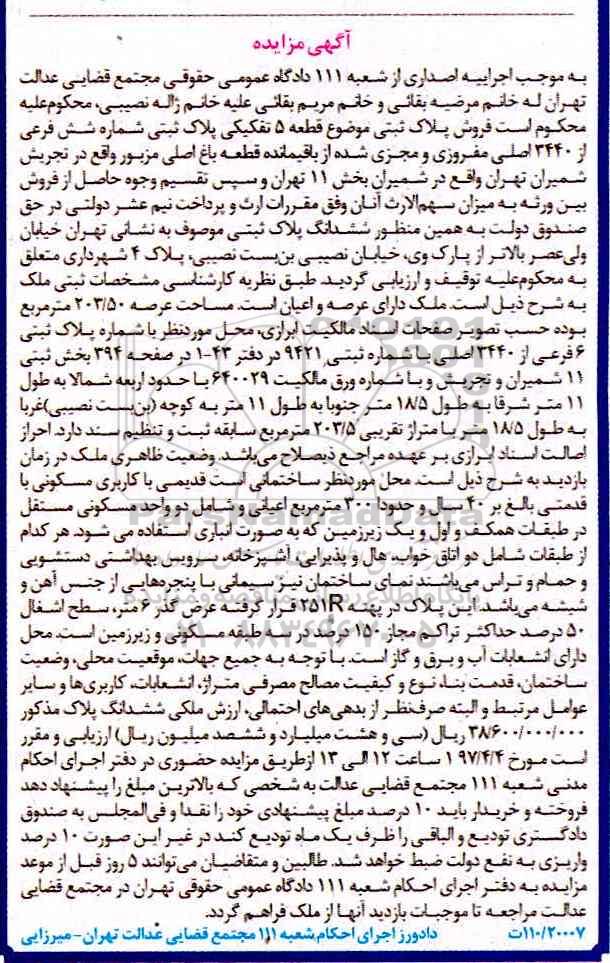 آگهی مزایده
به موجب اجراییه اصداری از شعبه ۱۱۱ دادگاه عمومی حقوقی مجتمع قضایی عدالت
تهران له خانم مرضیه بقائی و خانم مریم بقائی علیه خانم ژاله نصیبی، محکوم‌علیه
محکوم است فروش پلاک ثبتی موضوع قطعه ۵ تفکیکی پلاک ثبتی شماره شش فرعی
از ۳۴۴۰ اصلی مفروزی و مجزی شده از باقیمانده قطعه باغ اصلی مزبور واقع در تجریش
شمیران تهران واقع در شمیران بخش ۱۱ تهران و سپس تقسیم وجوه حاصل از فروش
بین ورثه به میزان سهم‌الارث آنان وفق مقررات ارث و پرداخت نیم عشر دولتی در حق
صندوق دولت به همین منظور ششدانگ پلاک ثبتی موصوف به نشانی تهران خیابان
ولی‌عصر بالاتر از پارک وی، خیابان نصیبی بن‌بست نصیبی، پلاک ۴ شهرداری متعلق
به محکوم‌علیه توقیف و ارزیابی گردید. طبق نظریه کارشناسی مشخصات ثبتی ملک
به شرح ذیل است. ملک دارای عرصه و اعیان است. مساحت عرصه ۲۰۳/۵۰ مترمربع
بوده حسب تصویر صفحات اسناد مالکیت ابرازی، محل موردنظر با شماره پلاک ثبتی
۶ فرعی از ۳۴۴۰ اصلی با شماره ثبتی ۹۴۲۱ در دفتر ۴۳-۱ در صفحه ۳۹۴ بخش ثبتی
۱۱ شمیران و تجریش و با شماره ورق مالکیت ۶۴۰۰۲۹ با حدود اربعه شمالا به طول
۱۱ متر شرقا به طول ۱۸/۵ متر جنوبا به طول ۱۱ متر به کوچه (بن‌بست نصیبی) غربا
به طول ۱۸/۵ متر با متراژ تقریبی ۲۰۳/۵ مترمربع سابقه ثبت و تنظیم سند دارد. احراز
اصالت اسناد ابرازی بر عهده مراجع ذیصلاح می‌باشد. وضعیت ظاهری ملک در زمان
بازدید به شرح ذیل است. محل موردنظر ساختمانی است قدیمی با کاربری مسکونی با
قدمتی بالغ بر ۴۰ سال و حدودا ۳۰۰ مترمربع اعیانی و شامل دو واحد مسکونی مستقل
در طبقات همکف و اول و یک زیرزمین که به صورت انباری استفاده می شود. هر کدام
از طبقات شامل دو اتاق خواب، هال و پذیرایی، آشپزخانه، سرویس بهداشتی دستشویی
و حمام و تراس می‌باشند نمای ساختمان نیز سیمانی با پنجره‌هایی از جنس آهن و
شیشه می‌باشد. این پلاک در پهنه ۲۵۱R قرار گرفته عرض گذر ۶ متر، سطح اشغال
۵۰ درصد حداکثر تراکم مجاز ۱۵۰ درصد در سه طبقه مسکونی و زیرزمین است. محل
دارای انشعابات آب و برق و گاز است. با توجه به جمیع جهات، موقعیت محلی، وضعیت
ساختمان، قدمت بنا، نوع و کیفیت مصالح مصرفی متراژ، انشعابات، کاربری‌ها و سایر
عوامل مرتبط و البته صرف‌نظر از بدهی‌های احتمالی، ارزش ملکی ششدانگ پلاک مذکور
۳۸/۶۰۰/۰۰۰/۰۰۰ ریال (سی و هشت میلیارد و ششصد میلیون ریال) ارزیابی و مقرر
است مورخ ۱۹۷/۴/۴ ساعت ۱۲ الی ۱۳ ازطریق مزایده حضوری در دفتر اجرای احکام
مدنی شعبه ۱۱۱ مجتمع قضایی عدالت به شخصی که بالاترین مبلغ را پیشنهاد دهد
فروخته و خریدار باید ۱۰ درصد مبلغ پیشنهادی خود را نقدا و فی‌المجلس به صندوق
دادگستری تودیع و الباقی را ظرف یک ماه تودیع کند در غیر این صورت ۱۰ درصد
واریزی به نفع دولت ضبط خواهد شد. طالبین و متقاضیان می‌توانند ۵ روز قبل از موعد
مزایده به دفتر اجرای احکام شعبه ۱۱۱ دادگاه عمومی حقوقی تهران در مجتمع قضایی
عدالت مراجعه تا موجبات بازدید آنها از ملک فراهم گردد.
دادورز اجرای احکام شعبه ۱۱۱ مجتمع قضایی عدالت تهران - میرزایی
۱۱۰/۲۰۰۰۷ت